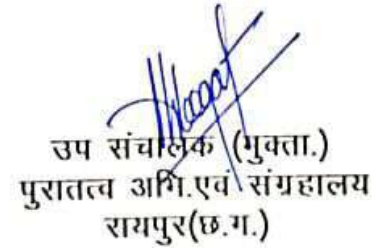 उप संचालक (मुक्ता.)
पुरातत्व अभि.एवं संग्रहालय
रायपुर(छ.ग.)